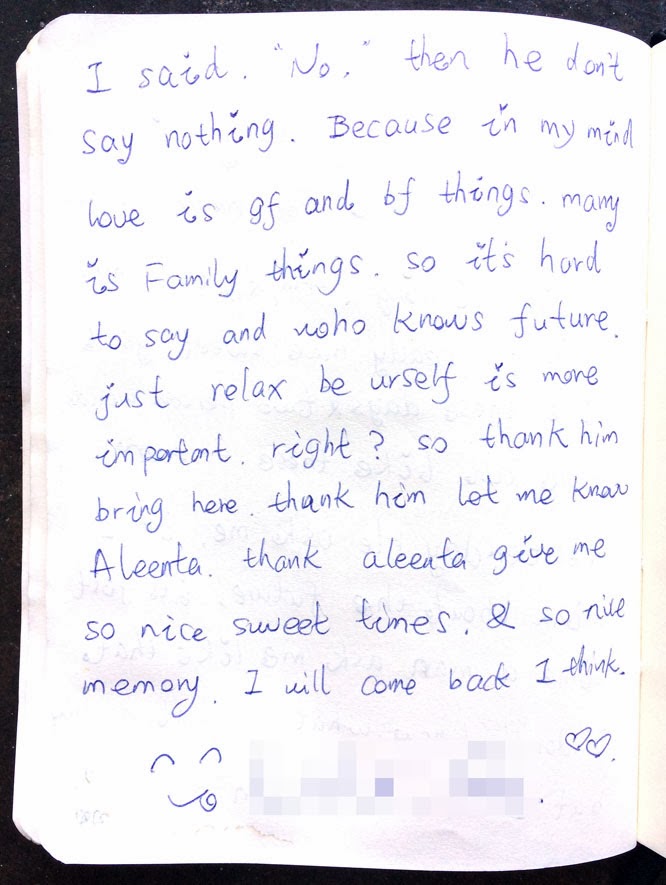 I said. "No." then he don't
say nothing. Because in my mind
love is gf and bf things. many
is Family things. so it's hard
to say and who knows future.
just relax be urself is more
important. right? so thank him
bring here. thank him let me know
Aleenta. thank aleenta give me
so nice sweet times. & so nice
memory. I will come back I think.